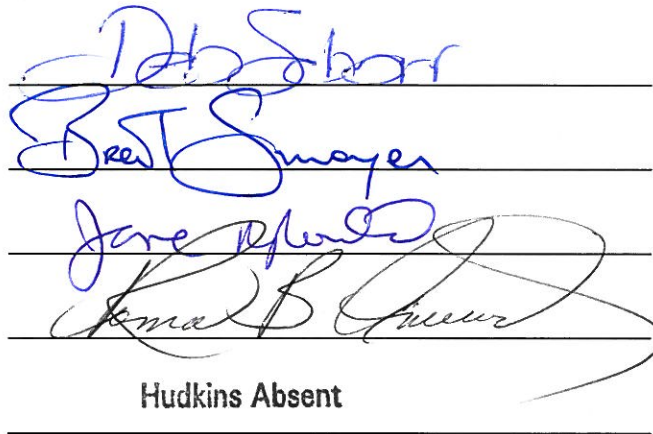 Deb Schorr
Brent Smoyer
Jane Raybould
Roma B Amund
Hudkins Absent